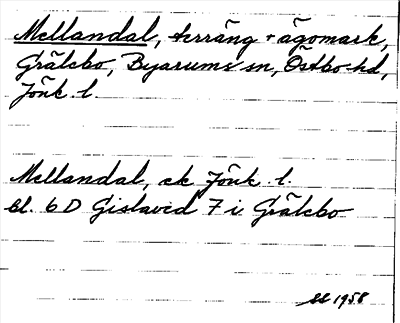 Mellandal, terräng + ägomark,
Grälebo, Byarums sn, Östbo hd,
Jönk. l.
Mellandal, ek Jönk. l.
bl. 6 D Gislaved 7 i Grälebo
1958